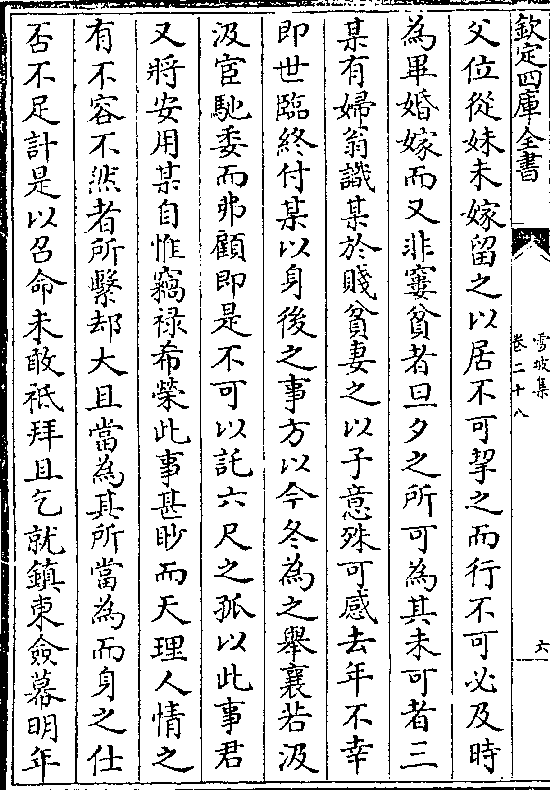 欽定四庫全書
雪坡集
卷二十八
六
父位從妹未嫁留之以居不可挈之而行不可必及時
為畢婚嫁而又非寠貧者旦夕之所可為其未可者三
某有婦翁識某於賤貧妻之以子意殊可感去年不幸
即世臨終付某以身後之事方以今冬為之舉襄若汲
汲宦馳委而弗顧即是不可以託六尺之孤以此事君
又將安用某自惟竊禄希榮此事甚眇而天理人情之
有不容不然者所繫却大且當為其所當為而身之仕
否不足計是以召命未敢袛拜且乞就鎮東僉幕明年